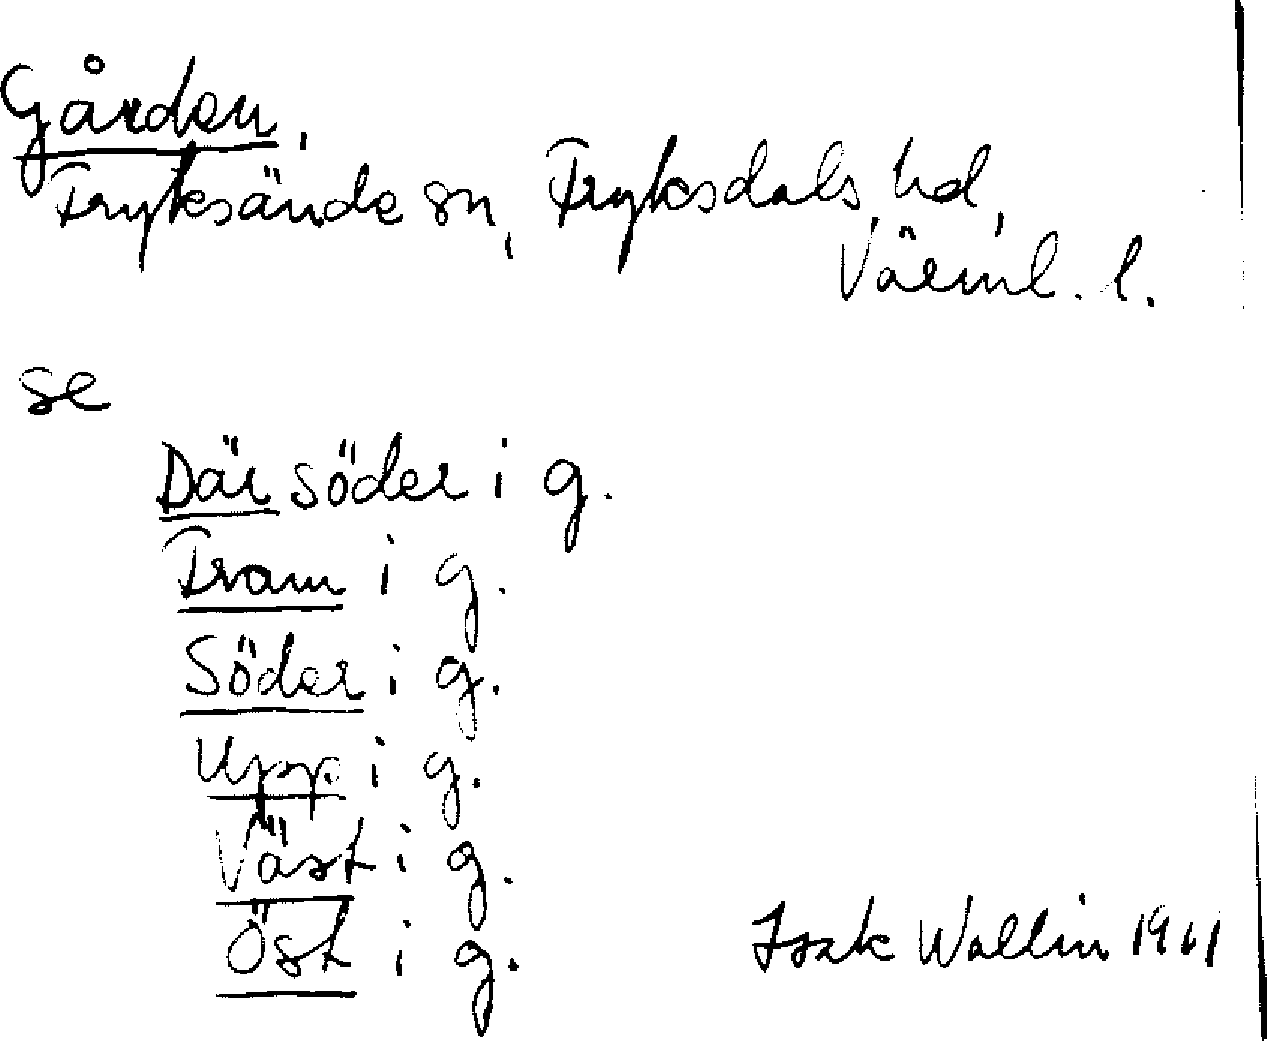 Gården,
Fryksände sn, Fryksdals hd,
Värml. l.
se
Där söder i g.
Fram i g.
Söder i g.
Upp i g.
Väst i g.
Öst i g.
Isak Wallin